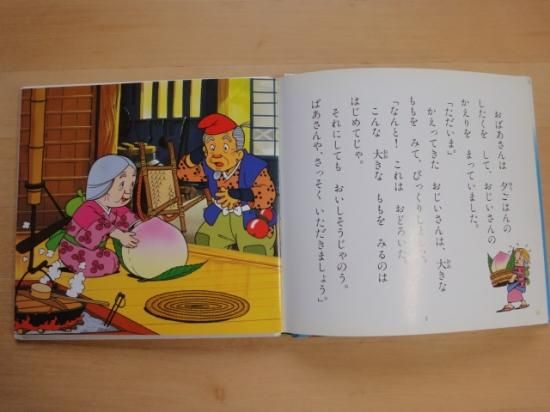 おばあさんは 夕ごはんの
したくを して、おじいさんの
かえりを まっていました。
「ただいま」
かえってきた おじいさんは、大きな
ももを みて、びっくりし
「なんと! これは おどろいた。
こんな 大きな ももを みるのは
はじめてじゃ。
それにしても おいしそうじゃのう。
ばあさんや、さっそく いただきましょう」。